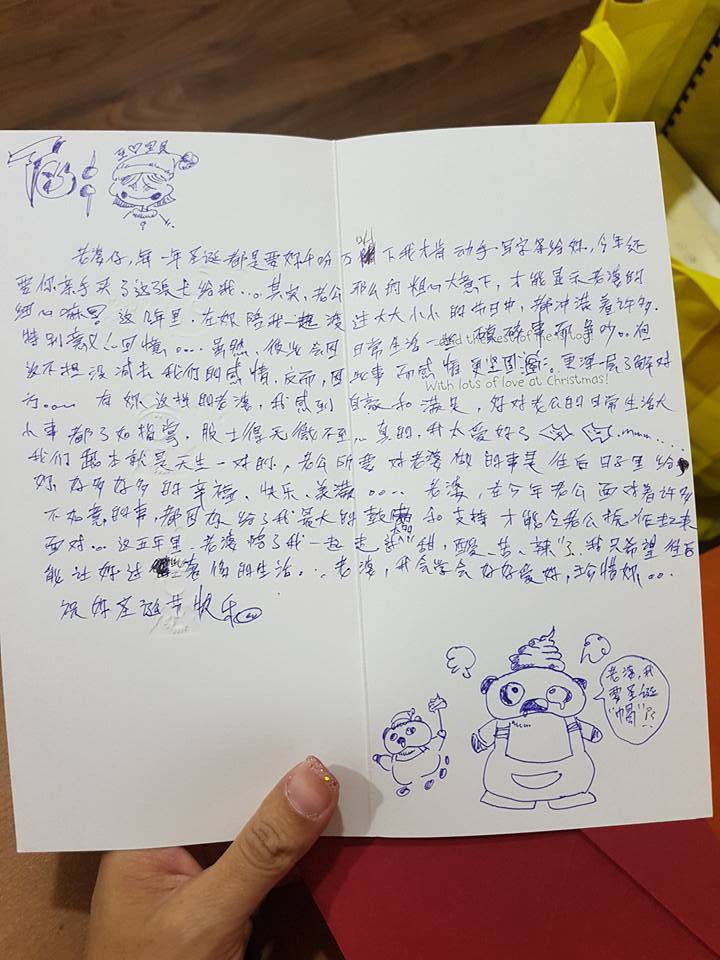 老婆仔，每一年圣诞都是要妳千吩万吩下我才肯动手写字条给妳，今年还
要你亲手买了这張卡给我... 其实，老公那么的粗心大意下，才能显示老婆的
细心嘛！这几年里，在妳陪我一起渡过大大小小的节日中，都冲满着许多
特别意义！回憶.... 虽然，彼此会因日常生活一起 事而争吵.. 但
这不担没减去我们的感情，反而，因此事而感情更坚固。更深一层了解对
方.... 有妳这様的老婆，我感到自豪和满足，好对老公的日常生活大
小事都了如指掌，服士得无微不至.. 真的，我太爱好了 mum....
我们 就是天生一对的，老公所要对老婆做的事是往后日子里给
妳好多好多的幸福、快乐、美满.... 老婆，在今年老公面对着许多
不如意的事，都因妳给了我最大的鼓励和支持才能令老公振作起来
面对... 这五年里，老婆陪了我一起走过"甜，酸，苦，辣"了，我只希望往后
能让妳过 的生活... 老婆，我会学会好好爱妳，珍惜妳...
祝妳圣诞节快乐
and the rest of the blog!
With lots of love at Christmas!
老婆，我
要圣诞
"帽"